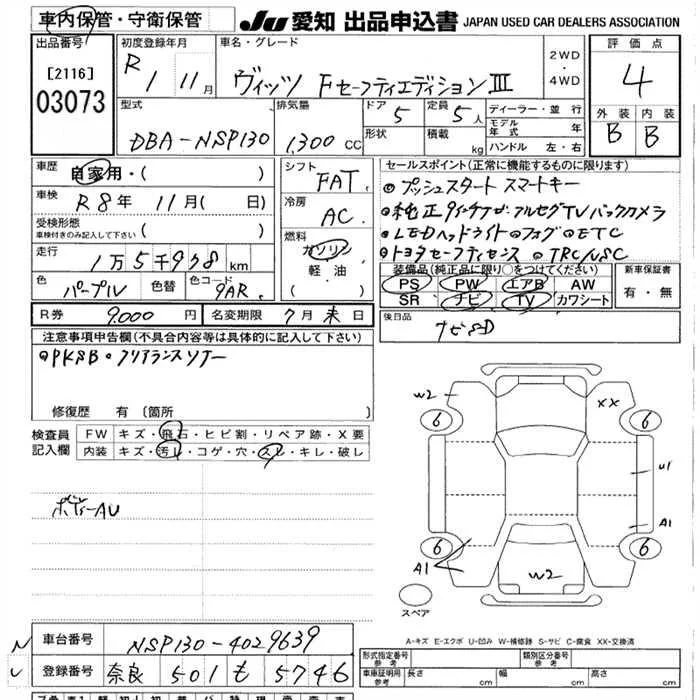 車内保管・守衛保管
JU 愛知 出品申込書 JAPAN USED CAR DEALERS ASSOCIATION
出品番号 [2116] 03073
初度登録年月 R 1 11月
車名・グレード ヴィッツ FセーフティエディションIII
2WD・4WD
評価点 4
外装 B 内装 B
型式 DBA-NSP130
排気量 1,300 CC
ドア 5 定員 5人
形状 積載 kg
ディーラー・並行
モデル年式 年
ハンドル 左・右
車歴 自家用・( )
車検 R8年 11月( 日)
受検形態 車検付きのみ記入して下さい ( )
走行 1万5千978km
色 パープル 色替 色コード 9AR
シフト FAT
冷房 AC
燃料 ガソリン 軽油 ( )
セールスポイント(正常に機能するものに限ります)
◎プッシュスタート スマートキー
◎純正9インチナビフルセグTVバックカメラ
◎LEDヘッドライト◎フォグ◎ETC
◎トヨタセーフティセンス ◎TRC/VSC
装備品(純正品に限り○をつけてください)
PS PW エアB AW
SR ナビ TV カワシート
新車保証書 有・無
R券 9,000円 名変期限 7月末日
後日品 ナビSD
注意事項申告欄(不具合内容等は具体的に記入して下さい)
◎PKSB◎クリアランスソナー
修復歴 有〔箇所 〕
検査員記入欄
FW キズ・飛石・ヒビ割・リペア跡・X要
内装 キズ・汚れ・コゲ・穴・スレ・キレ・破し
ボディーAU
W2 XX
6 6
U1
A1
6 6
A1 W2
スペア
A-キズ E-エクボ U-凹み W-補修跡 S-サビ C-腐食 XX-交換済
車台番号 NSP130-4029639
登録番号 奈良 501 も 5746
N
U
形式指定番号 参考 類別区分番号 参考
車庫証明用 参考 長さ cm 幅 cm 高さ cm